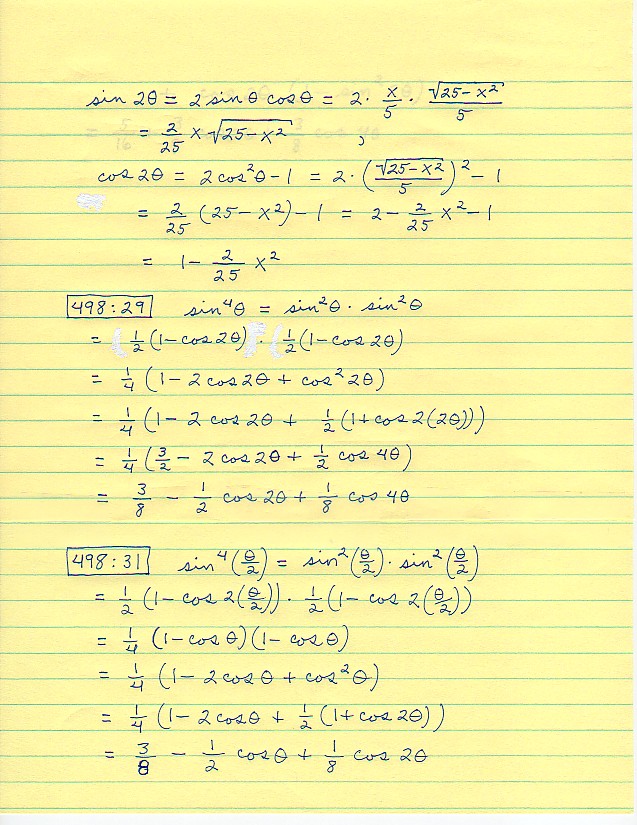 sin 2θ = 2 sin θ cos θ = 2 · x/5 · √(25-x²)/5
= 2/25 x √(25-x²) ,
cos 2θ = 2cos²θ - 1 = 2 · (√(25-x²)/5)² - 1
= 2/25 (25-x²) - 1 = 2 - 2/25 x² - 1
= 1 - 2/25 x²
498:29 sin⁴θ = sin²θ · sin²θ
= 1/2 (1-cos 2θ) · 1/2 (1-cos 2θ)
= 1/4 (1 - 2 cos 2θ + cos² 2θ)
= 1/4 (1 - 2 cos 2θ + 1/2 (1+cos 2(2θ)))
= 1/4 (3/2 - 2 cos 2θ + 1/2 cos 4θ)
= 3/8 - 1/2 cos 2θ + 1/8 cos 4θ
498:31 sin⁴(θ/2) = sin²(θ/2) · sin²(θ/2)
= 1/2 (1-cos 2(θ/2)) · 1/2 (1-cos 2(θ/2))
= 1/4 (1-cos θ)(1-cos θ)
= 1/4 (1 - 2 cos θ + cos²θ)
= 1/4 (1 - 2cosθ + 1/2 (1+cos 2θ))
= 3/8 - 1/2 cos θ + 1/8 cos 2θ